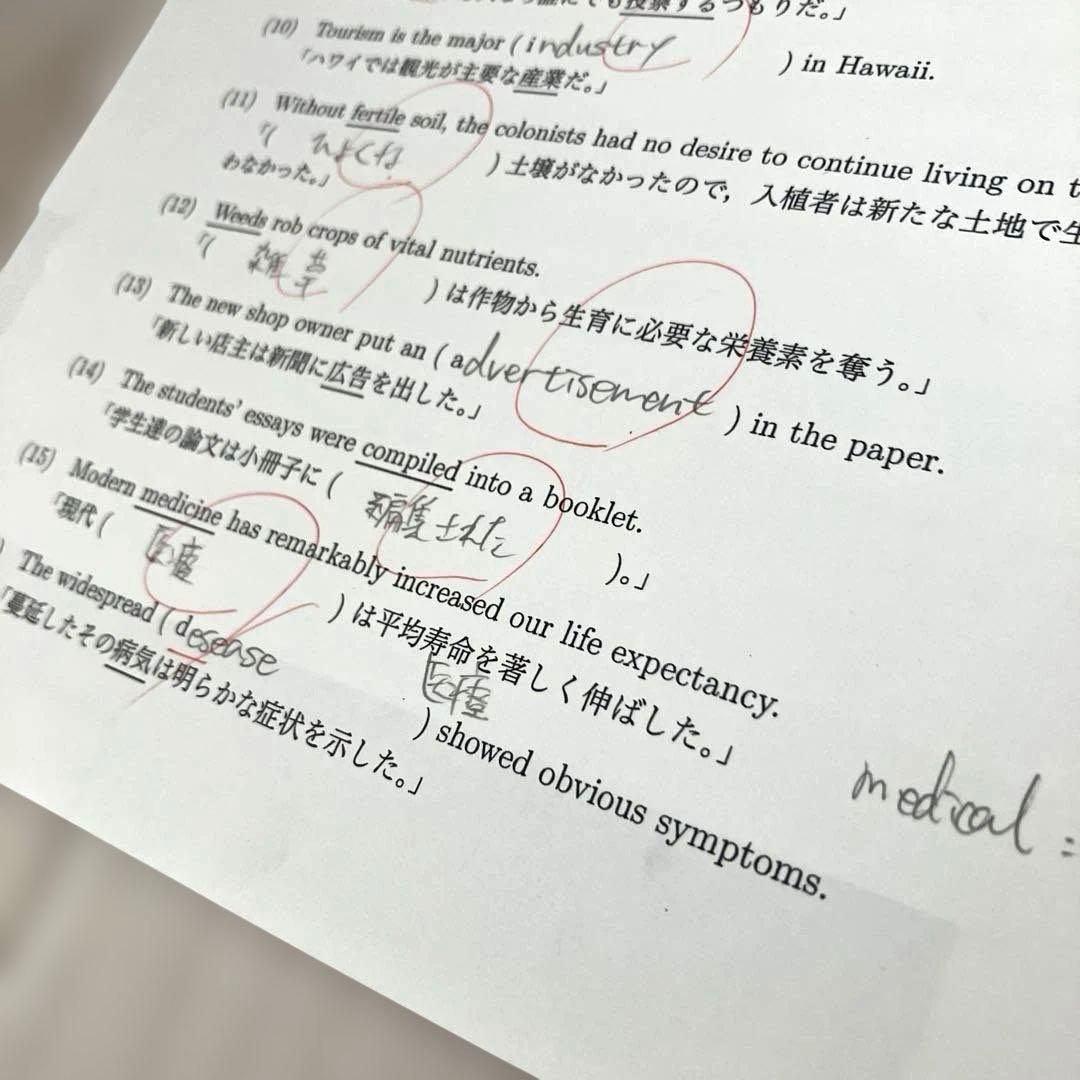 投票するつもりだ。」
(10) Tourism is the major ( industry ) in Hawaii.
「ハワイでは観光が主要な産業だ。」
(11) Without fertile soil, the colonists had no desire to continue living on
「( ひよくな ) 土壌がなかったので，入植者は新たな土地で生
わなかった。」
(12) Weeds rob crops of vital nutrients.
「( 雑草 ) は作物から生育に必要な栄養素を奪う。」
(13) The new shop owner put an ( advertisement ) in the paper.
「新しい店主は新聞に広告を出した。」
(14) The students' essays were compiled into a booklet.
「学生達の論文は小冊子に ( 編集された )。」
(15) Modern medicine has remarkably increased our life expectancy.
「現代 ( 医療 ) は平均寿命を著しく伸ばした。」
) The widespread ( desease ) showed obvious symptoms.
「蔓延したその病気は明らかな症状を示した。」
medical =